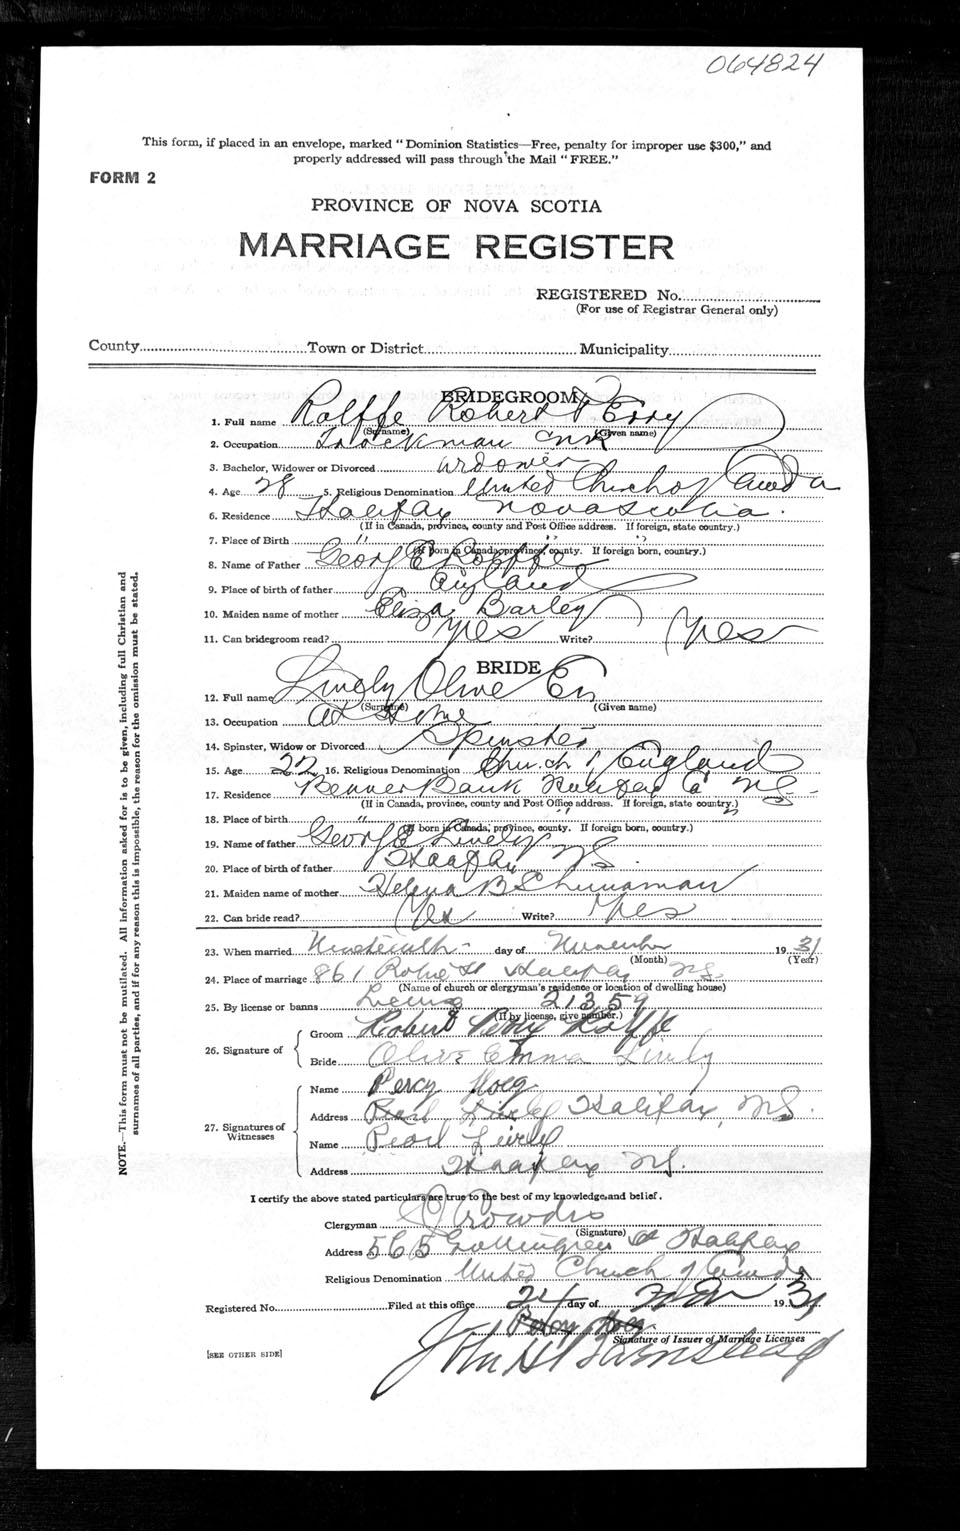 064824
This form, if placed in an envelope, marked "Dominion Statistics—Free, penalty for improper use $300," and
properly addressed will pass through the Mail "FREE."
FORM 2
PROVINCE OF NOVA SCOTIA
MARRIAGE REGISTER
REGISTERED No.
(For use of Registrar General only)
County Town or District Municipality
BRIDEGROOM
1. Full name Rolffe Robert Perry
(Surname) (Given name)
2. Occupation Truckman
3. Bachelor, Widower or Divorced Widower
4. Age 28 5. Religious Denomination United Church of Canada
6. Residence Halifax Nova Scotia.
(If in Canada, province, county and Post Office address. If foreign, state country.)
7. Place of Birth " " "
(If born in Canada, province, county. If foreign born, country.)
8. Name of Father George Rolffe
9. Place of birth of father England
10. Maiden name of mother Eliza Barley
11. Can bridegroom read? Yes Write? Yes
BRIDE
12. Full name Lively Olive Em
(Surname) (Given name)
13. Occupation At Home
14. Spinster, Widow or Divorced Spinster
15. Age 22 16. Religious Denomination Church of England
17. Residence Beaver Bank Halifax Co NS.
(If in Canada, province, county and Post Office address. If foreign, state country.)
18. Place of birth " " "
(If born in Canada, province, county. If foreign born, country.)
19. Name of father George Lively
20. Place of birth of father Halifax NS.
21. Maiden name of mother Helena B
22. Can bride read? Yes Write? Yes
23. When married Nineteenth day of November 1931
(Month) (Year)
24. Place of marriage 861 Robie St Halifax NS.
(Name of church or clergyman's residence or location of dwelling house)
25. By license or banns License 21359
(If by license, give number.)
26. Signature of
Groom Robert Perry Rolffe
Bride Olive Emma Lively
27. Signatures of Witnesses
Name Percy Hoeg
Address Pearl Lively Halifax, NS.
Name Pearl Lively
Address Halifax NS.
I certify the above stated particulars are true to the best of my knowledge and belief.
Clergyman Crowdis
(Signature)
Address 565 Gottingen St Halifax
Religious Denomination United Church of Canada
Registered No. Filed at this office 24 day of Nov 1931
Percy Hoeg
Signature of Issuer of Marriage Licenses
John H Barnstead
[SEE OTHER SIDE]
NOTE.—This form must not be mutilated. All information asked for is to be given, including full Christian and
surnames of all parties, and if for any reason this is impossible, the reason for the omission must be stated.